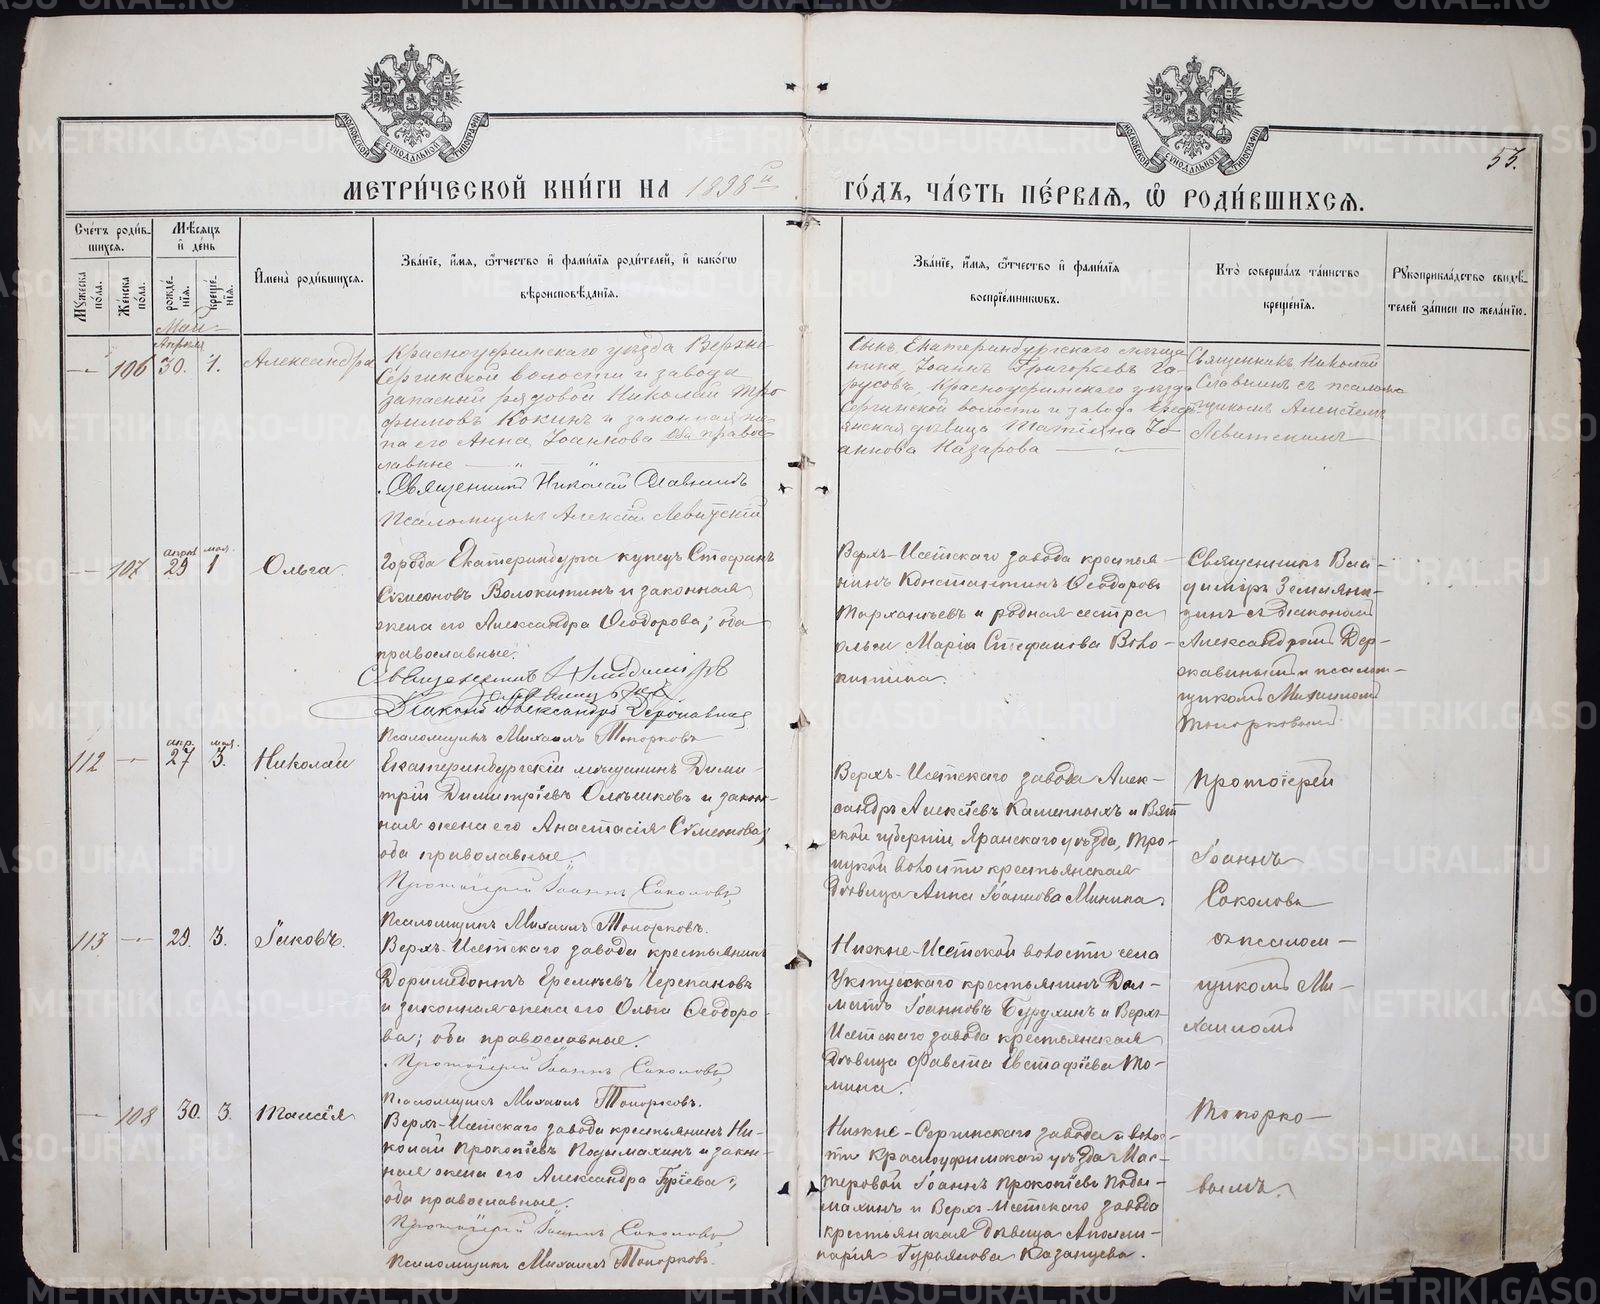 МОСКОВСКОЙ СѴНОДАЛЬНОЙ ТИПОГРАФІИ
МОСКОВСКОЙ СѴНОДАЛЬНОЙ ТИПОГРАФІИ
53.
МЕТРИ́ЧЕСКОЙ КНИ́ГИ НА 1898й ГО́ДЪ, ЧА́СТЬ ПЕ́РВАЯ, Ѽ РОДИ́ВШИХСЯ.
Сче́тъ роди́вшихся.
Мꙋжеска по́ла.
Же́нска по́ла.
Мѣ́сяцъ и҆ де́нь
рожде́нїя.
креще́нїя.
И҆мена̀ роди́вшихся.
Зва́нїе, и҆́мя, ѻ҆́тчество и҆ фами́лїя роди́телей, и҆ како́гѡ вѣроисповѣ́данїя.
Зва́нїе, и҆́мя, ѻ҆́тчество и҆ фами́лїя воспрїе́мниковъ.
Кто̀ соверша́лъ та́инство креще́нїя.
Рꙋкоприкла́дство свидѣ́телей за́писи по жела́нїю.
Май
Апрѣля
— 106 30. 1. Александра
Красноуфимскаго уѣзда Верхне-
Сергинской волости и завода
запасный рядовой Николай Тро-
фимовъ Кокинъ и законная же-
на его Анна Іоаннова оба право-
славные
Священникъ Николай Славнинъ
Псаломщикъ Алексій Левитскій
Сынъ Екатеринбургскаго мѣща-
нина, Іоаннъ Григорьевъ Га-
русовъ, Красноуфимскаго уѣзда
Сергинской волости и завода крест-
янская дѣвица Татіяна Іо-
аннова Назарова
Священникъ Николай
Славнинъ съ псалом-
щикомъ Алексіемъ
Левитскимъ
апрѣ мая.
— 107 29 1 Ольга.
Города Екатеринбурга купецъ Стефанъ
Симеоновъ Волокитинъ и законная
жена его Александра Ѳеодорова; оба
православные.
Священникъ Владиміръ
Земляницынъ
Діаконъ Александръ Державинъ
Псаломщикъ Михаилъ Топорковъ
Верхъ-Исетскаго завода крестья-
нинъ Константинъ Ѳеодоровъ
и родная сестра
Ольги Марія Стефанова Воло-
китина.
Священникъ Вла-
диміръ Земляни-
цынъ съ Діакономъ
Александромъ Дер-
жавинымъ и псалом-
щикомъ Михаиломъ
Топорковымъ
апр. мая.
112 — 27 3. Николай
Екатеринбургскій мѣщанинъ Дими-
трій Димитріевъ Олѣшковъ и закон-
ная жена его Анастасія Симеонова;
оба православные.
Протоіерей Іоаннъ Соколовъ,
Псаломщикъ Михаилъ Топорковъ.
Верхъ-Исетскаго завода Алек-
сандръ Алексѣевъ Каменныхъ и Вят-
ской губерніи, Яранскаго уѣзда, Тро-
ицкой волости крестьянская
дѣвица Анна Іоаннова Минина.
Протоіерей
Іоаннъ
Соколовъ
съ псалом-
щикомъ Ми-
хаиломъ
Топорко-
вымъ.
113 — 29. 3. Іаковъ.
Верхъ-Исетскаго завода крестьянинъ
Доримедонтъ Еремѣевъ Черепановъ
и законная жена его Ольга Ѳеодоро-
ва; оба православные.
Протоіерей Іоаннъ Соколовъ,
Псаломщикъ Михаилъ Топорковъ.
Нижне-Исетской волости села
Уктусскаго крестьянинъ Дал-
матъ Іоанновъ Бурухинъ и Верхъ-
Исетскаго завода крестьянская
дѣвица Фавста Евстафіева То-
мина.
— 108 30. 3. Таисія
Верхъ-Исетскаго завода крестьянинъ Ни-
колай Прокопіевъ Подымахинъ и закон-
ная жена его Александра Гуріева;
оба православные.
Протоіерей Іоаннъ Соколовъ,
Псаломщикъ Михаилъ Топорковъ.
Нижне-Сергинскаго завода и воло-
сти Красноуфимскаго уѣзда Мас-
теровой Іоаннъ Прокопіевъ Поды-
махинъ и Верхъ-Исетскаго завода
крестьянская дѣвица Аполли-
нарія Гурьянова Казанцева.
METRIKI.GASO-URAL.RU